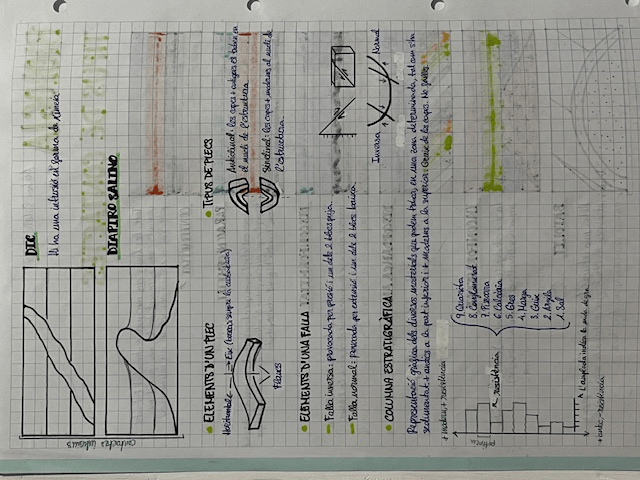 DIC
Hi ha una intrusió en forma de xinxeia
DIAPIRO SALINO
contactes intrusius
● ELEMENTS D'UN PLEC
Eix (traça sobre la
Flancs
● TIPUS DE PLECS
Anticlinal: les capes + antigues es troben en
el nucli de l'estructura
Sinclinal: les capes + modernes al nucli de
l'estructura.
● ELEMENTS D'UNA FALLA
- Falla inversa: provocada per pressió i un dels 2 blocs puja.
- Falla normal: provocada per extensió i un dels 2 blocs baixa.
Inversa
Normal
● COLUMNA ESTRATIGRÀFICA
Representació gràfica dels diversos materials que podem trobar, en una zona determinada, tal com s'ha
sedimentat + antics a la part inferior i + moderns a la superior. Gruix de les capes. No falles.
+ modern, + resistència
potència
resistència
9. Quarsita
8. Conglomerat
7. Pissarra
6. Calcària
5. Gres
4. Marga
3. Guix
2. Argila
1. Sal
L'amplada indica la
+ antic, - resistència